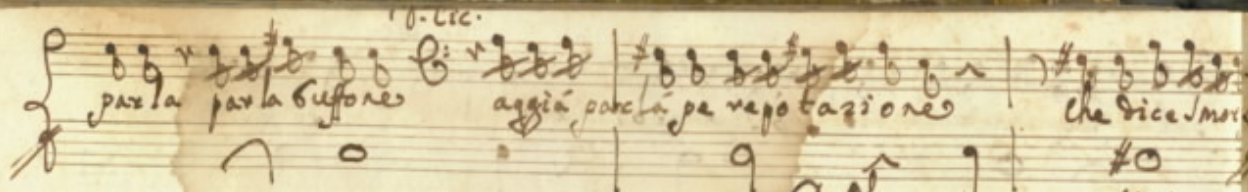 parla parla buffone aggiá parlá pe repotazione che dice